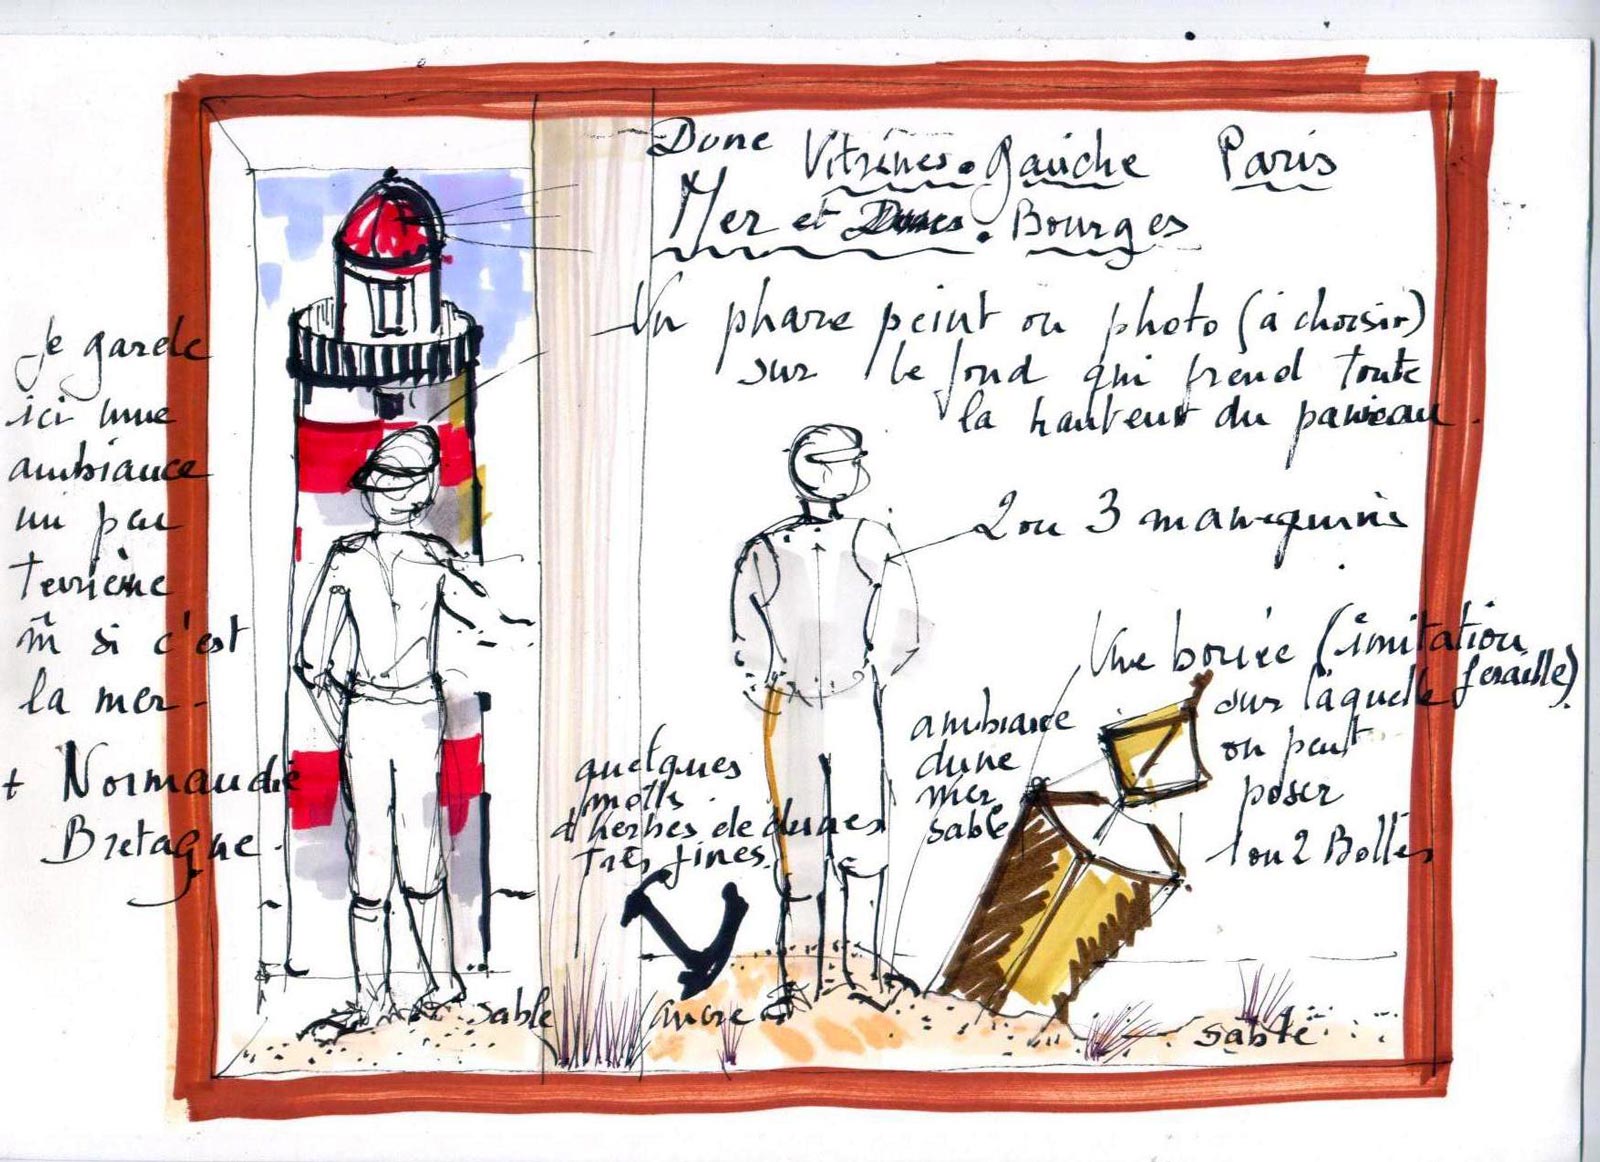 Donc Vitrines. gauche Paris
Mer et Dunes. Bourges
Un phare peint ou photo (à choisir)
sur le fond qui prend toute
la hauteur du panneau.
Je garde
ici une
ambiance
un peu
terrienne
m̂ si c'est
la mer.
+ Normandie
Bretagne.
2 ou 3 mannequins
Une bouée (imitation
feraille)
sur laquelle
on peut
poser
1 ou 2 Bottes
ambiance
dune
mer
sable
quelques
motts
d'herbes de dunes
très fines.
sable
ancre
sable